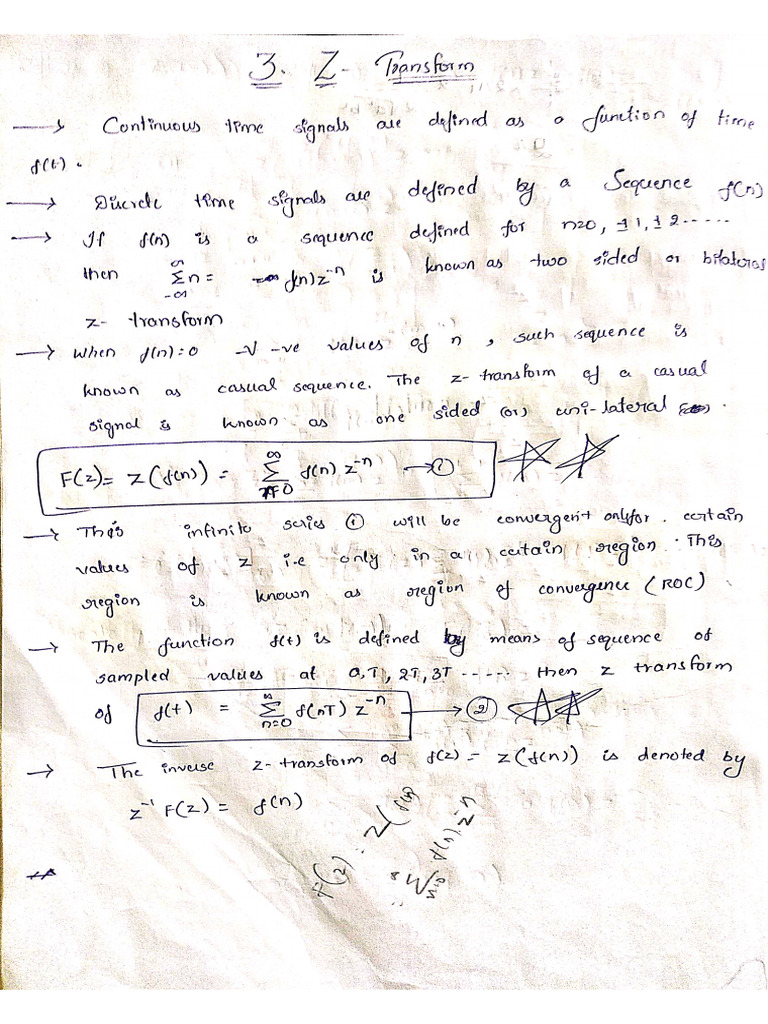 3. Z - Transform
→ Continuous time signals are defined as a function of time
f(t).
→ Discrete time signals are defined by a Sequence f(n)
→ If f(n) is a sequence defined for n=0, ±1, ±2 ......
then ∞ Σ n = -∞ f(n) z⁻ⁿ is known as two sided or bilateral
-∞
z- transform
→ When f(n)=0 ∀ -ve values of n, such sequence is
known as casual sequence. The z-transform of a casual
signal is known as one sided (or) uni-lateral
F(z) = Z(f(n)) = ∞ Σ n=0 f(n) z⁻ⁿ → ①
→ This infinite series ① will be convergent only for certain
values of z i.e only in a certain region. This
region is known as region of convergence (ROC)
→ The function f(t) is defined by means of sequence of
sampled values at 0,T, 2T, 3T ----- then z transform
of f(t) = ∞ Σ n=0 f(nT) z⁻ⁿ → ②
→ The inverse z-transform of f(z) = z(f(n)) is denoted by
z⁻¹ F(z) = f(n)
F(z) = Z(f(n)
= ∞ Σ n=0 f(n) z⁻ⁿ